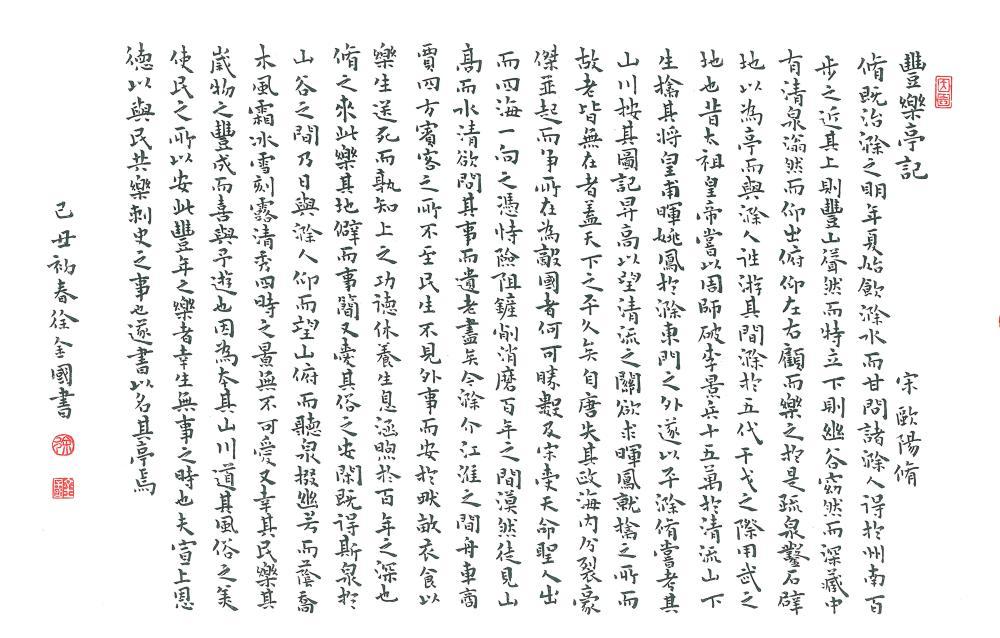 豐樂亭記
宋歐陽脩
脩既治滁之明年夏始飲滁水而甘問諸滁人得於州南百
步之近其上則豐山聳然而特立下則幽谷窈然而深藏中
有清泉滃然而仰出俯仰左右顧而樂之於是疏泉鑿石辟
地以為亭而與滁人往游其間滁於五代干戈之際用武之
地也昔太祖皇帝嘗以周師破李景兵十五萬於清流山下
生擒其將皇甫暉姚鳳於滁東門之外遂以平滁脩嘗考其
山川按其圖記昇高以望清流之關欲求暉鳳就擒之所而
故老皆無在者蓋天下之平久矣自唐失其政海內分裂豪
傑並起而爭所在為敵國者何可勝數及宋受天命聖人出
而四海一向之憑恃險阻鏟削消磨百年之間漠然徒見山
高而水清欲問其事而遺老盡矣今滁介江淮之間舟車商
賈四方賓客之所不至民生不見外事而安於畎畝衣食以
樂生送死而孰知上之功德休養生息涵煦於百年之深也
脩之來此樂其地僻而事簡又愛其俗之安閑既得斯泉於
山谷之間乃日與滁人仰而望山俯而聽泉掇幽芳而蔭喬
木風霜冰雪刻露清秀四時之景無不可愛又幸其民樂其
歲物之豐成而喜與予遊也因為本其山川道其風俗之美
使民之所以安此豐年之樂者幸生無事之時也夫宣上恩
德以與民共樂刺史之事也遂書以名其亭焉
己丑初春徐金國書